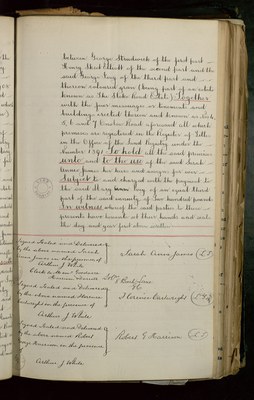 between George Strudwick of the first part
Henry Short Elliott of the second part and the
said George Pay of the third part and
therein coloured green (being part of an estate
known as The Stoke Road Estate) Together
with the four messuages or tenements and
buildings erected thereon and known as
5, 6 and 7 Road aforesaid all which
premises are registered in the Register of Titles
in the Office of the Land Registry under the
Number To hold all the said premises
unto and to the use of the said Sarah
Annie Jarvis her heirs and assigns for ever
Subject to and charged with the payment to
the said Mary Pay of an equal third
part of the said annuity of two hundred pounds
In witness whereof the said parties to these
presents have hereunto set their hands and seals
the day and year first above written
Signed Sealed and Delivered
by the above named Sarah
Annie Jarvis in the presence of
Arthur J White
Clerk to
Sarah Annie Jarvis (L.S.)
Signed Sealed and Delivered
by the above named Florence
Cartwright in the presence of
Arthur J White
Florence Cartwright (L.S.)
Signed Sealed and Delivered
by the above named Robert
George Harrison in the presence
of Arthur J White
Robert G Harrison (L.S.)